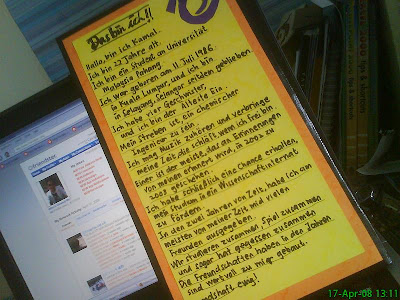 Das bin ich!!
Hallo, bin ich Kamal.
Ich bin 22 Jahre alt.
Ich bin ein Student an Universität
Malaysia Pahang
Ich war geboren am 11. Juli 1986
in Kuala Lumpur und ich bin
in Selayang, Selangor seitdem geblieben
Ich habe vier Geschwister,
und ich bin der Älteste Ein.
Mein streben ist ein chemischer
Ingenieur zu sein.
Ich mag Musik zuhören und verbringe
meine Zeit, die schläft wenn ich frei bin
Einer ist der meiste, das an Erinnerungen
von meinen erinnert wird, in 2002 zu
2003 geschehen.
Ich habe schließlich eine Chance erhalten,
mein studium in ein Wissenschaftsinternat
zu fördern.
In den zwei Jahren von Zeit, habe ich am
meisten von meiner Zeit mid vielen
Freunden ausgegeben.
Wir studieren zusammen, spiel zusammen
und sogar hat gegessen zusammen
Die Freundschaften haben in den Jahren
sind wertvoll zu mier gebaut.
ewig!
friendster
17-Apr-08 13:11